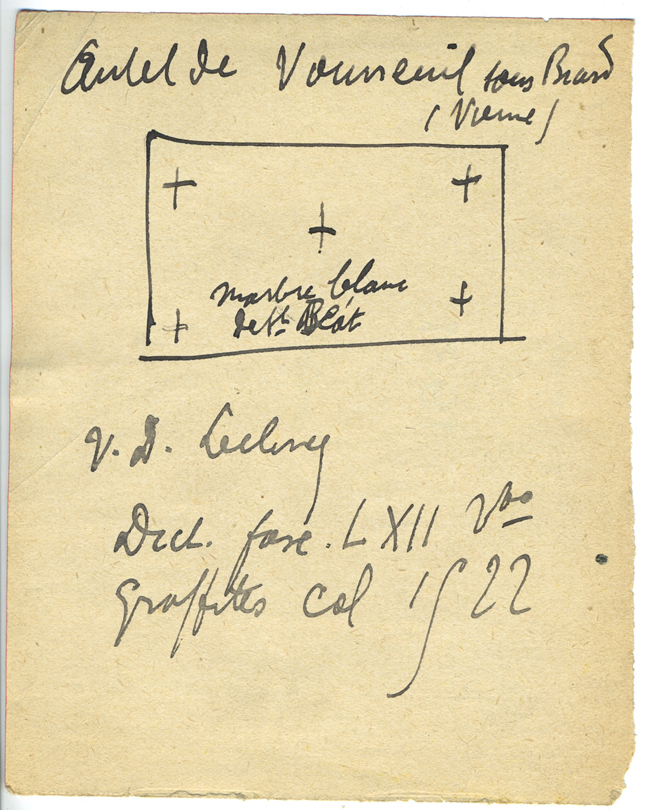 Autel de Vouneuil sous Biard
(Vienne)
marbre blanc
de St
v. D. Leclercq
Dict. fasc. LXII Vbo
Graffites col 1522